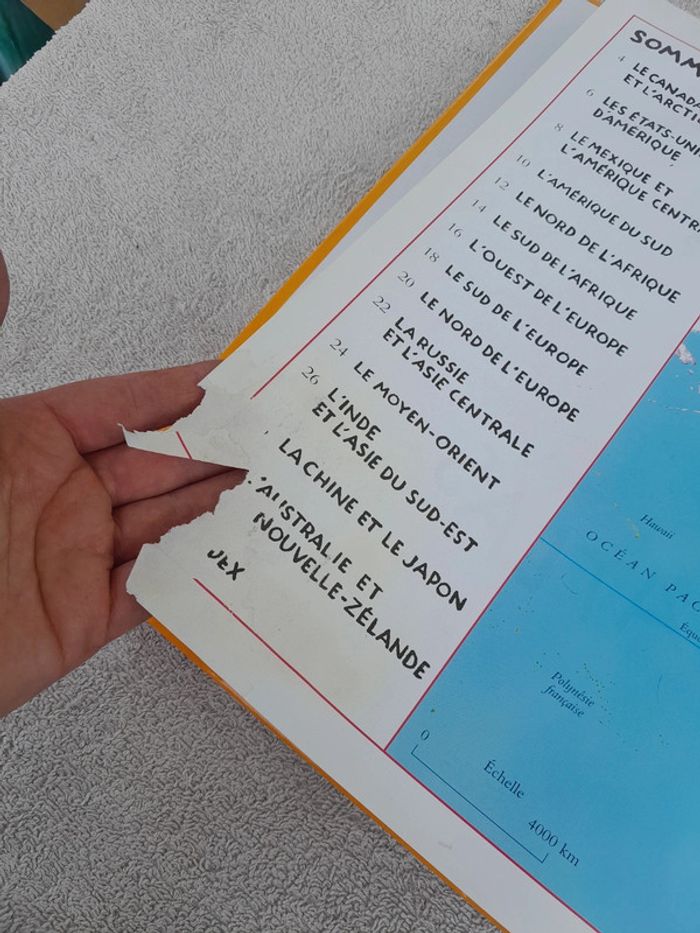 SOMM
4 LE CANADA
ET L'ARCTI
6 LES ÉTATS-UNI
D'AMÉRIQUE
8 LE MEXIQUE ET
L'AMÉRIQUE CENTRA
10 L'AMÉRIQUE DU SUD
12 LE NORD DE L'AFRIQUE
14 LE SUD DE L'AFRIQUE
16 L'OUEST DE L'EUROPE
18 LE SUD DE L'EUROPE
20 LE NORD DE L'EUROPE
22 LA RUSSIE
ET L'ASIE CENTRALE
24 LE MOYEN-ORIENT
26 L'INDE
ET L'ASIE DU SUD-EST
LA CHINE ET LE JAPON
'AUSTRALIE ET
NOUVELLE-ZÉLANDE
DEX
Hawaii
OCÉAN PAC
Équa
Polynésie
française
0
Échelle
4000 km